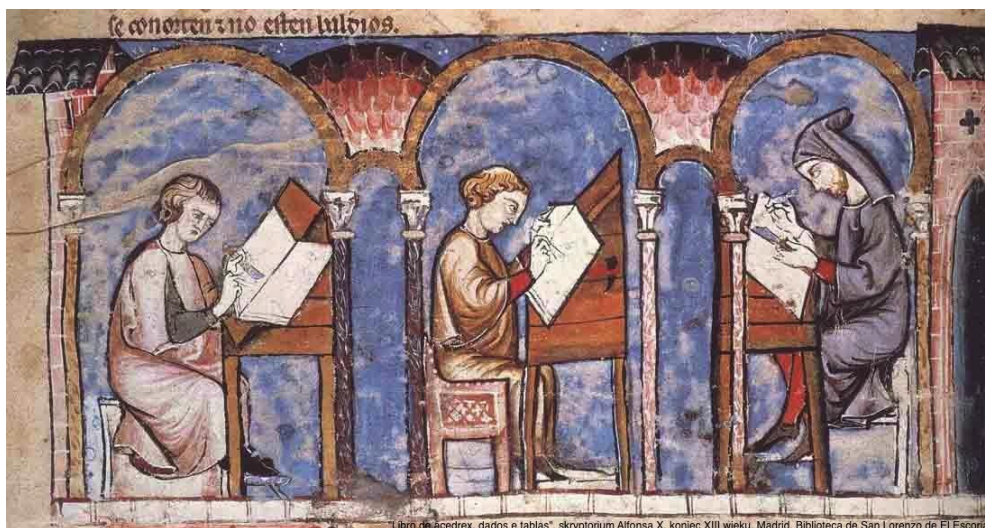 se conorten ⁊ no esten baldios.
"Libro de acedrex, dados e tablas", skryptorium Alfonsa X, koniec XIII wieku, Madrid, Biblioteca de San Lorenzo de El Escori